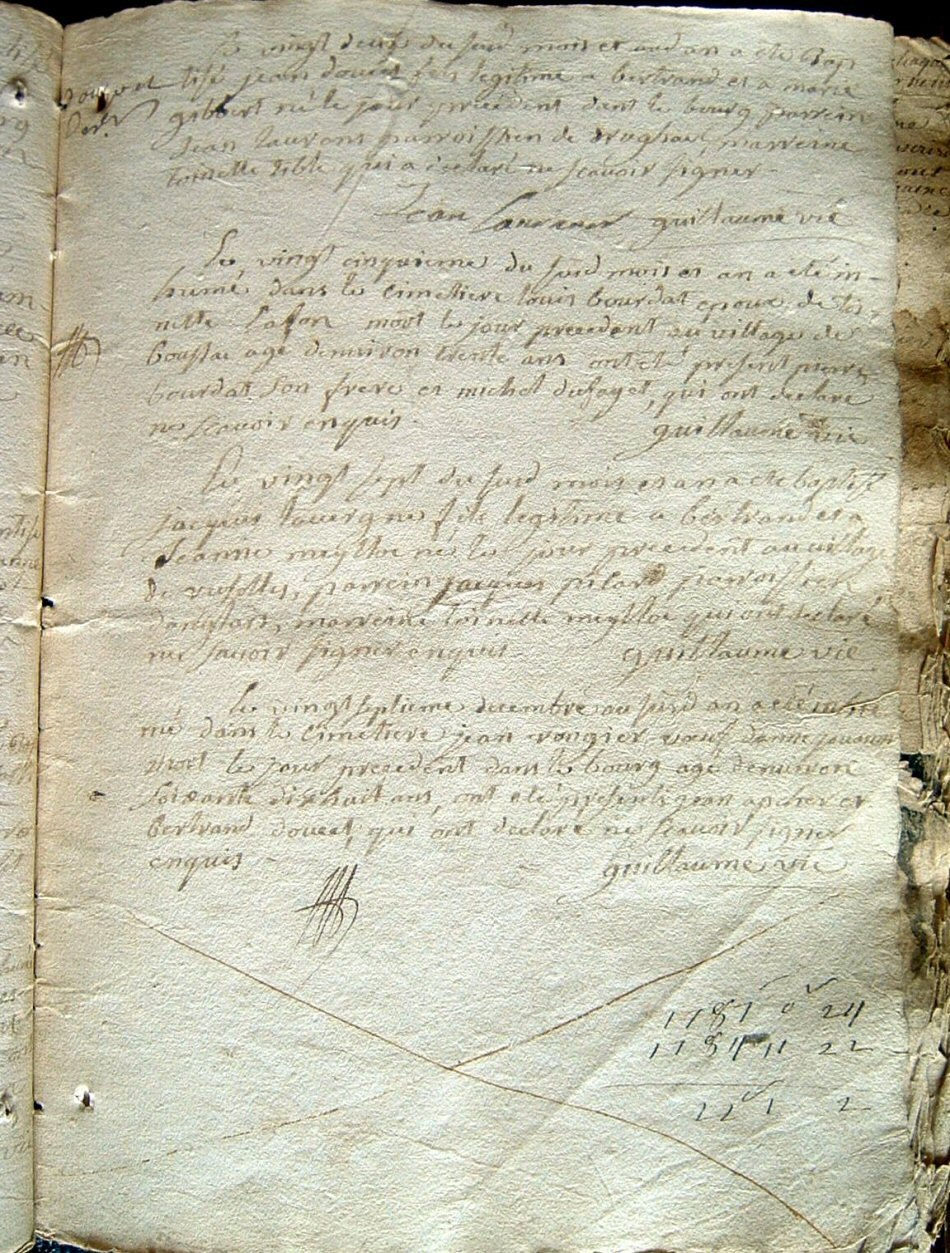 Le vingt deux du susd mois et susd an a eté Bap
tisé jean doucet fils legitime a bertrand et a marie
gibbert né le jour precedent dans le bourg parrein
Jean laurens parroissien de marreine
toinette qui a declaré ne scavoir signer
doucet
Jean Laurens guillaume vié
Le vingt cinquieme du susd mois et an a eté in-
humé dans le cimetiere louis bourdat epoux de toi-
nette Lafon mort le jour precedent au village de
boussac agé denviron trente ans ont eté present pierre
bourdat son frere et michel dufayet, qui ont declaré
ne scavoir enquis.
guillaume vié
Le vingt sept du susd mois et an a eté baptisé
jacques lavergne fils legitime a bertrand et a
Jeanne meylhoc né le jour precedent au village
de parrein jacques pilard parroissien
danglars, marreine toinette meylhoc qui ont declaré
ne savoir signer enquis
guillaume vié
Le vingt septieme decembre au susd an a eté inhu
mé dans le cimetiere jean rougier veuf danne
mort le jour precedent dans le bourg agé denviron
soixante dix huit ans, ont eté presents jean apcher et
bertrand doucet, qui ont declaré ne scavoir signer
enquis
guillaume vié